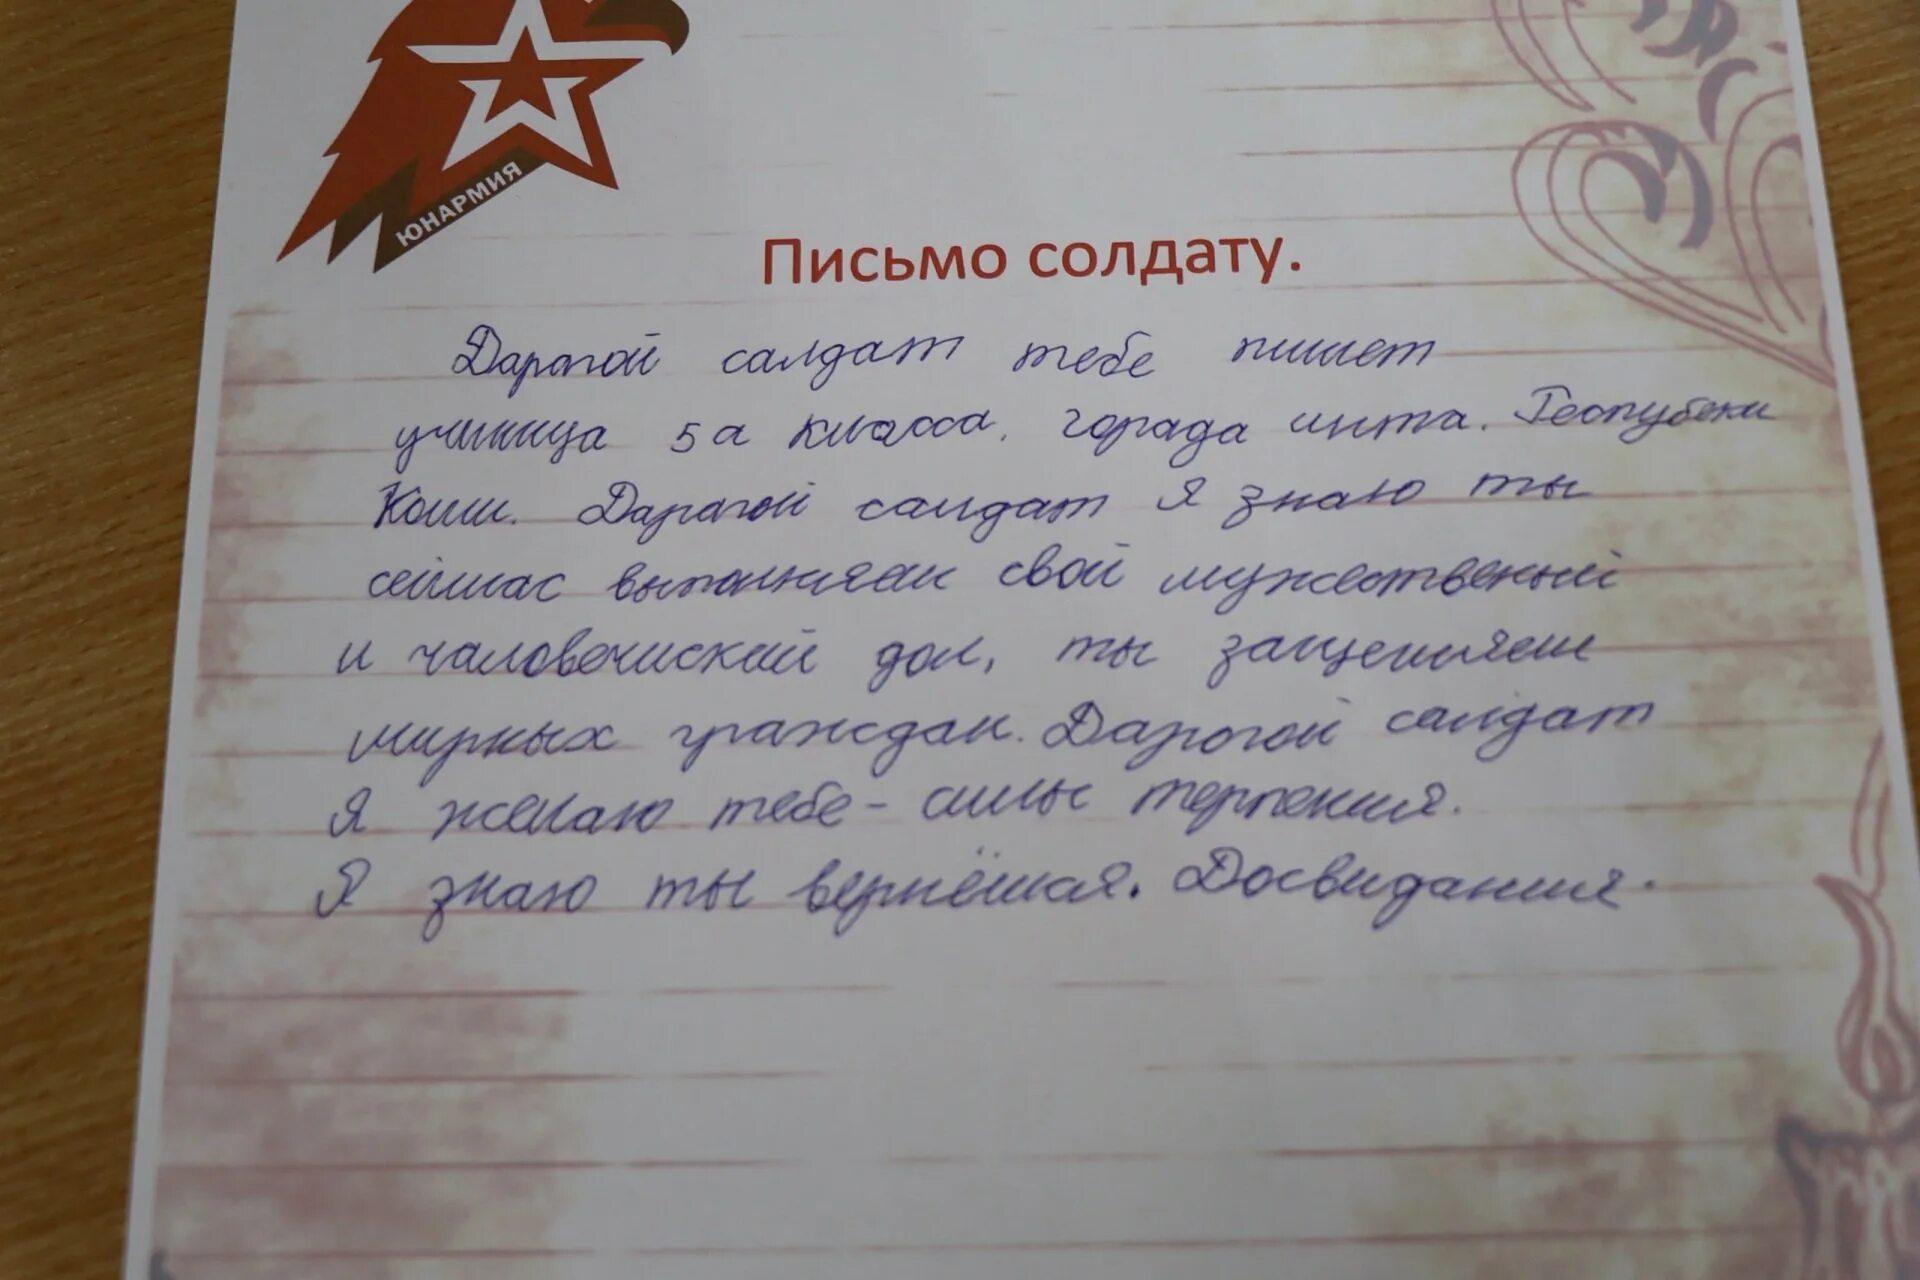 ЮНАРМИЯ
Письмо солдату.
Дарогой салдат тебе пишет
ученица 5а класса, горада инта. Респубеки
Коми. Дарагой салдат я знаю ты
сейчас выполняеш свой мужественый
и чаловечиский дол, ты защеняеш
мирных граждан. Дарогой салдат
я желаю тебе - силы терпения.
Я знаю ты вернёшся. Досвидания.